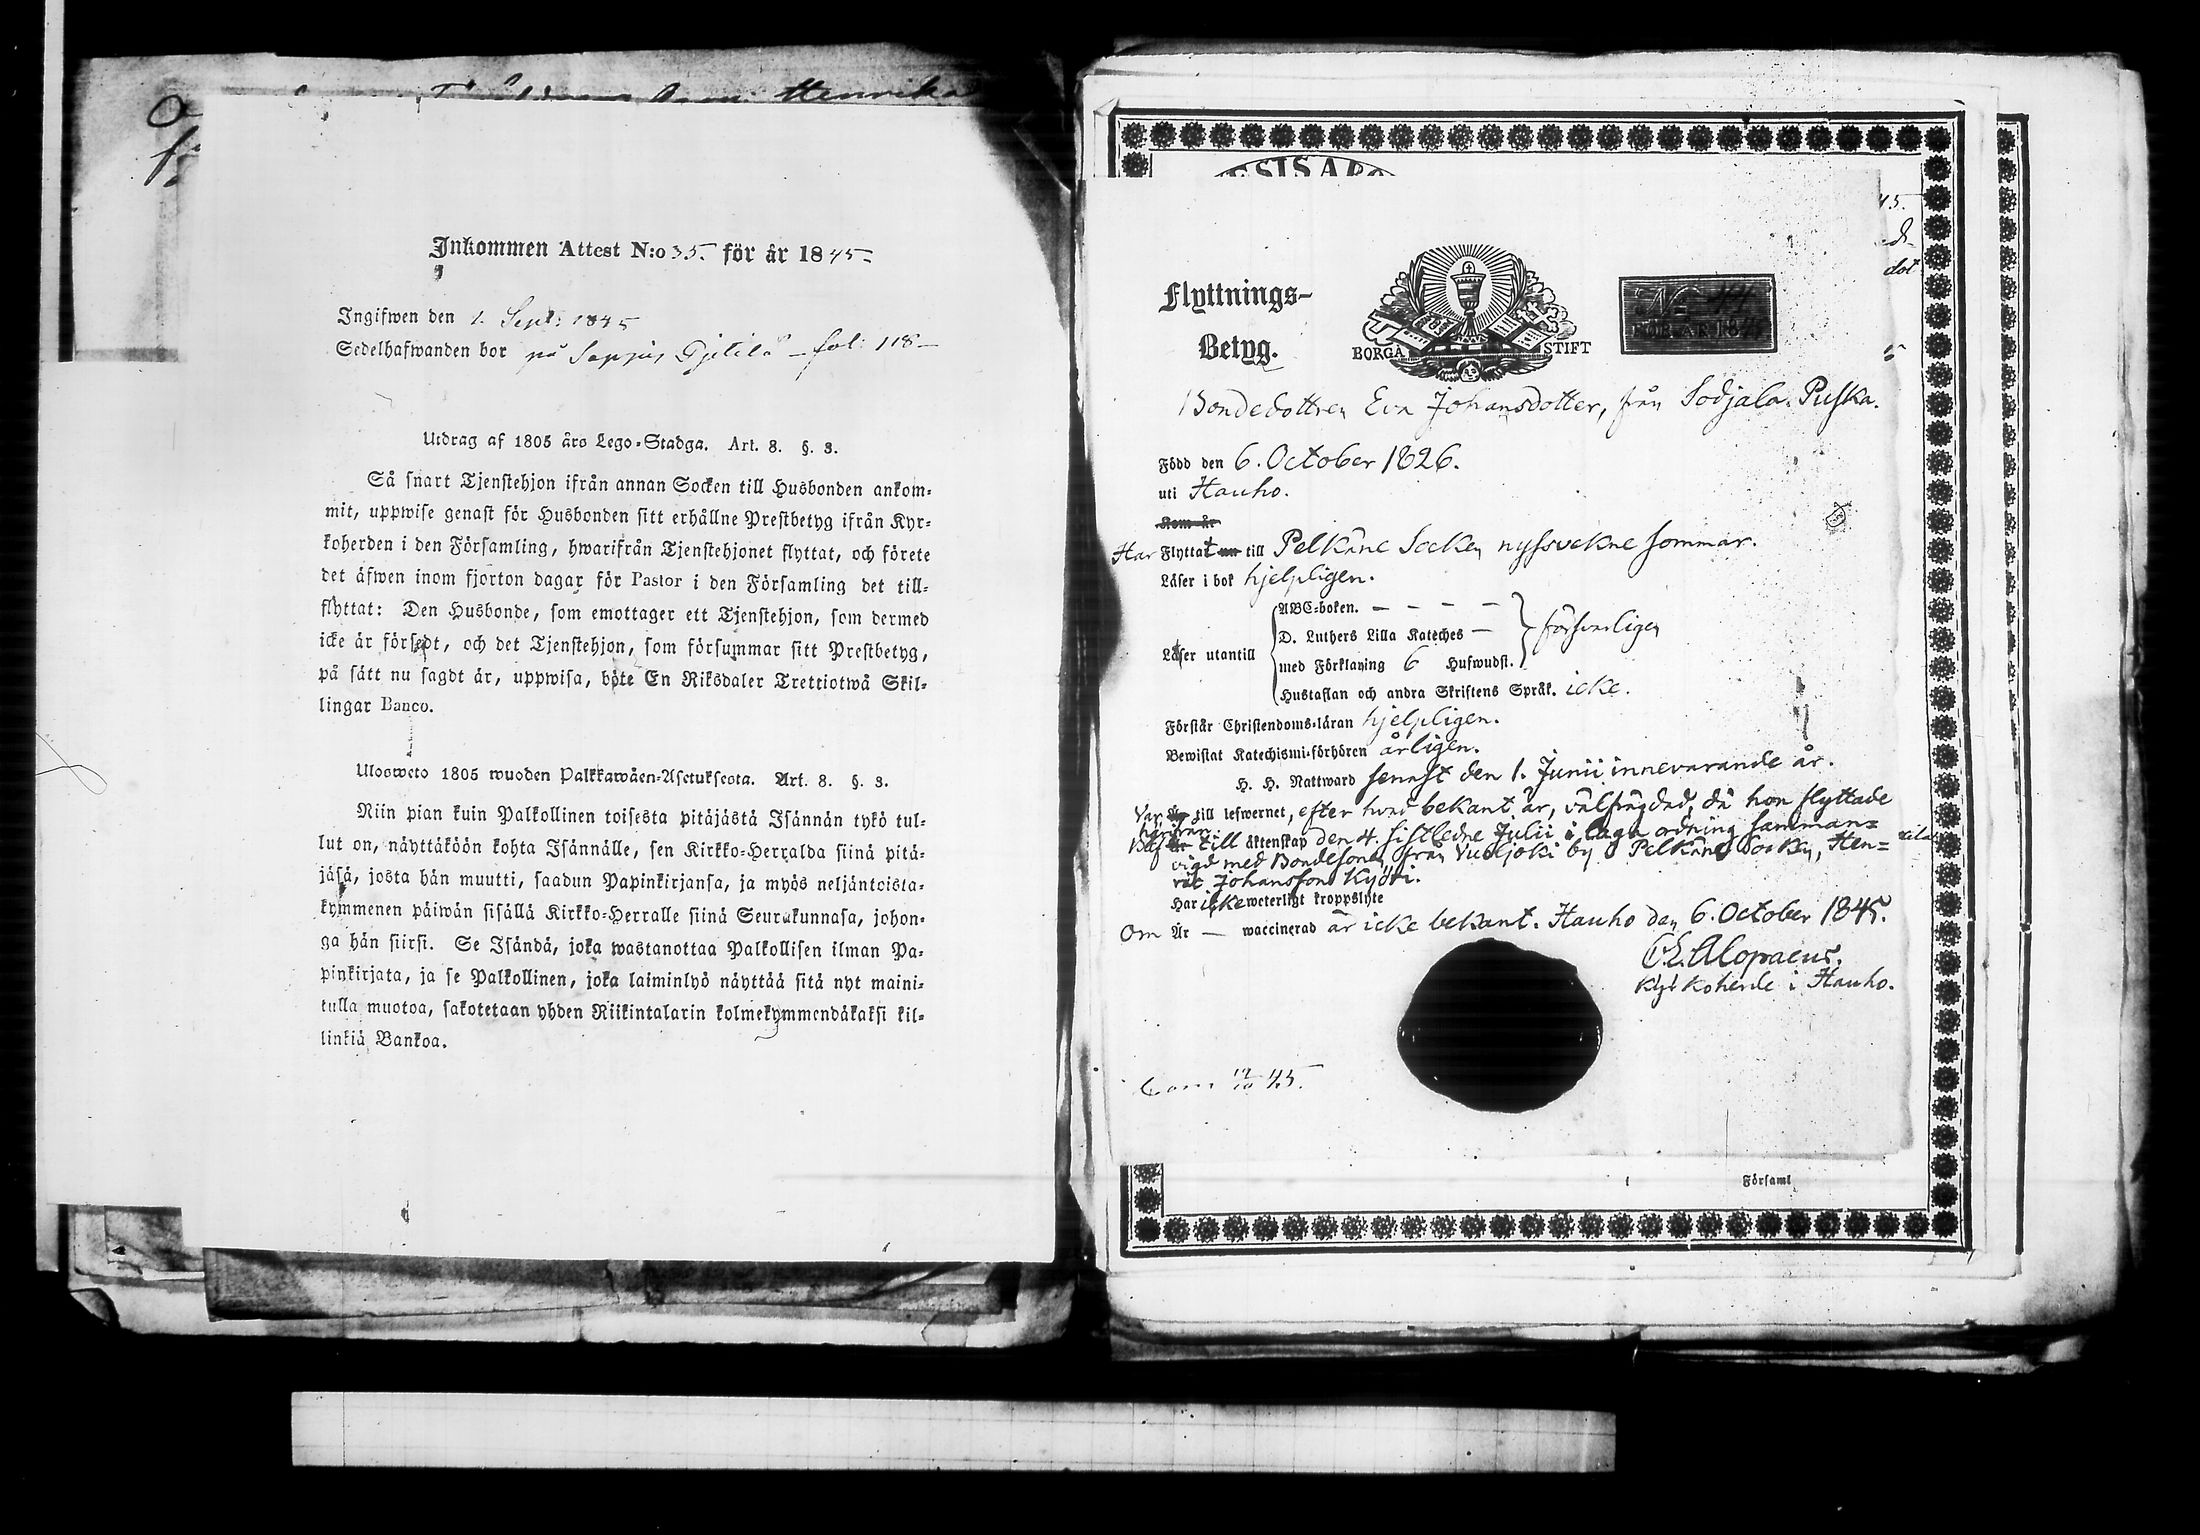 Henrika
Inkommen Attest N:o 35. för år 1845
Ingifwen den 1. Sept: 1845
Sedelhafwanden bor på fol: 118
Utdrag af 1805 års Lego-Stadga. Art. 8. §. 3.
Så snart Tjenstehjon ifrån annan Socken till Husbonden ankom-
mit, uppwise genast för Husbonden sitt erhållne Prestbetyg ifrån Kyr-
koherden i den Församling, hwarifrån Tjenstehjonet flyttat, och förete
det äfwen inom fjorton dagar för Pastor i den Församling det till-
flyttat: Den Husbonde, som emottager ett Tjenstehjon, som dermed
icke är försedt, och det Tjenstehjon, som försummar sitt Prestbetyg,
på sätt nu sagdt är, uppwisa, böte En Riksdaler Trettiotwå Skil-
lingar Banco.
Ulosweto 1805 wuoden Palkkawäen-Asetuksesta. Art. 8. §. 3.
Niin pian kuin Palkollinen toisesta pitäjästä Isännän tykö tul-
lut on, näyttäköön kohta Isännälle, sen Kirkko-Herralda siinä pitä-
jäsä, josta hän muutti, saadun Papinkirjansa, ja myös neljäntoista-
kymmenen päiwän sisällä Kirkko-Herralle siinä Seurakunnasa, johon-
ga hän siirsi. Se Isändä, joka wastanottaa Palkollisen ilman Pa-
pinkirjata, ja se Palkollinen, joka laiminlyö näyttää sitä nyt maini-
tulla muotoa, sakotetaan yhden Riikintalarin kolmekymmendäkaksi kil-
linkiä Bankoa.
Flyttnings-
Betyg.
BORGÅ STIFT
No 44
FÖR ÅR 18
Bondedottren Eva Johansdotter, från Sodjala Puska.
Född den 6. October 1826.
uti Hauho.
Kom år
Har Flyttat nu till Pelkäne Socken nyssvekne sommar.
Läser i bok hjelpligen.
Läser utantill
ABC-boken. — — — —
D. Luthers Lilla Kateches —
med Förklaring 6 Hufwudst.
försvarligen
Hustaflan och andra Skriftens Språk. icke.
Förstår Christendoms-läran hjelpligen.
Bewistat Katechismi-förhören årligen.
H. H. Nattward senast den 1. Junii innevarande år.
Var till lefwernet, efter hvad bekant är, välfrägdad, då hon flyttade
härifrån.
till äktenskap den 4. sistledne Julii i laga ordning samman-
vigd med Bondesonen från Vuoljoki by i Pelkäne Socken, Hen-
rik Johansson Kyösti.
Har icke weterligt kroppslyte
Om Är — waccinerad är icke bekant. Hauho den 6. October 1845.
Alopaeus.
Kyrkoherde i Hauho.
45.
Församl